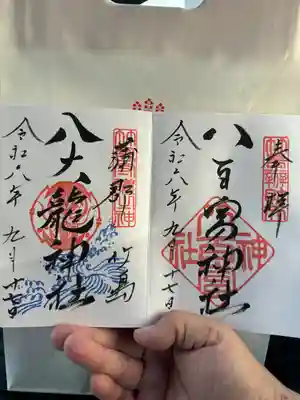 奉拝
八百富神社
令和六年 九月 十七日
蒲郡 竹島
八大龍神社
令和六年 九月 十七日